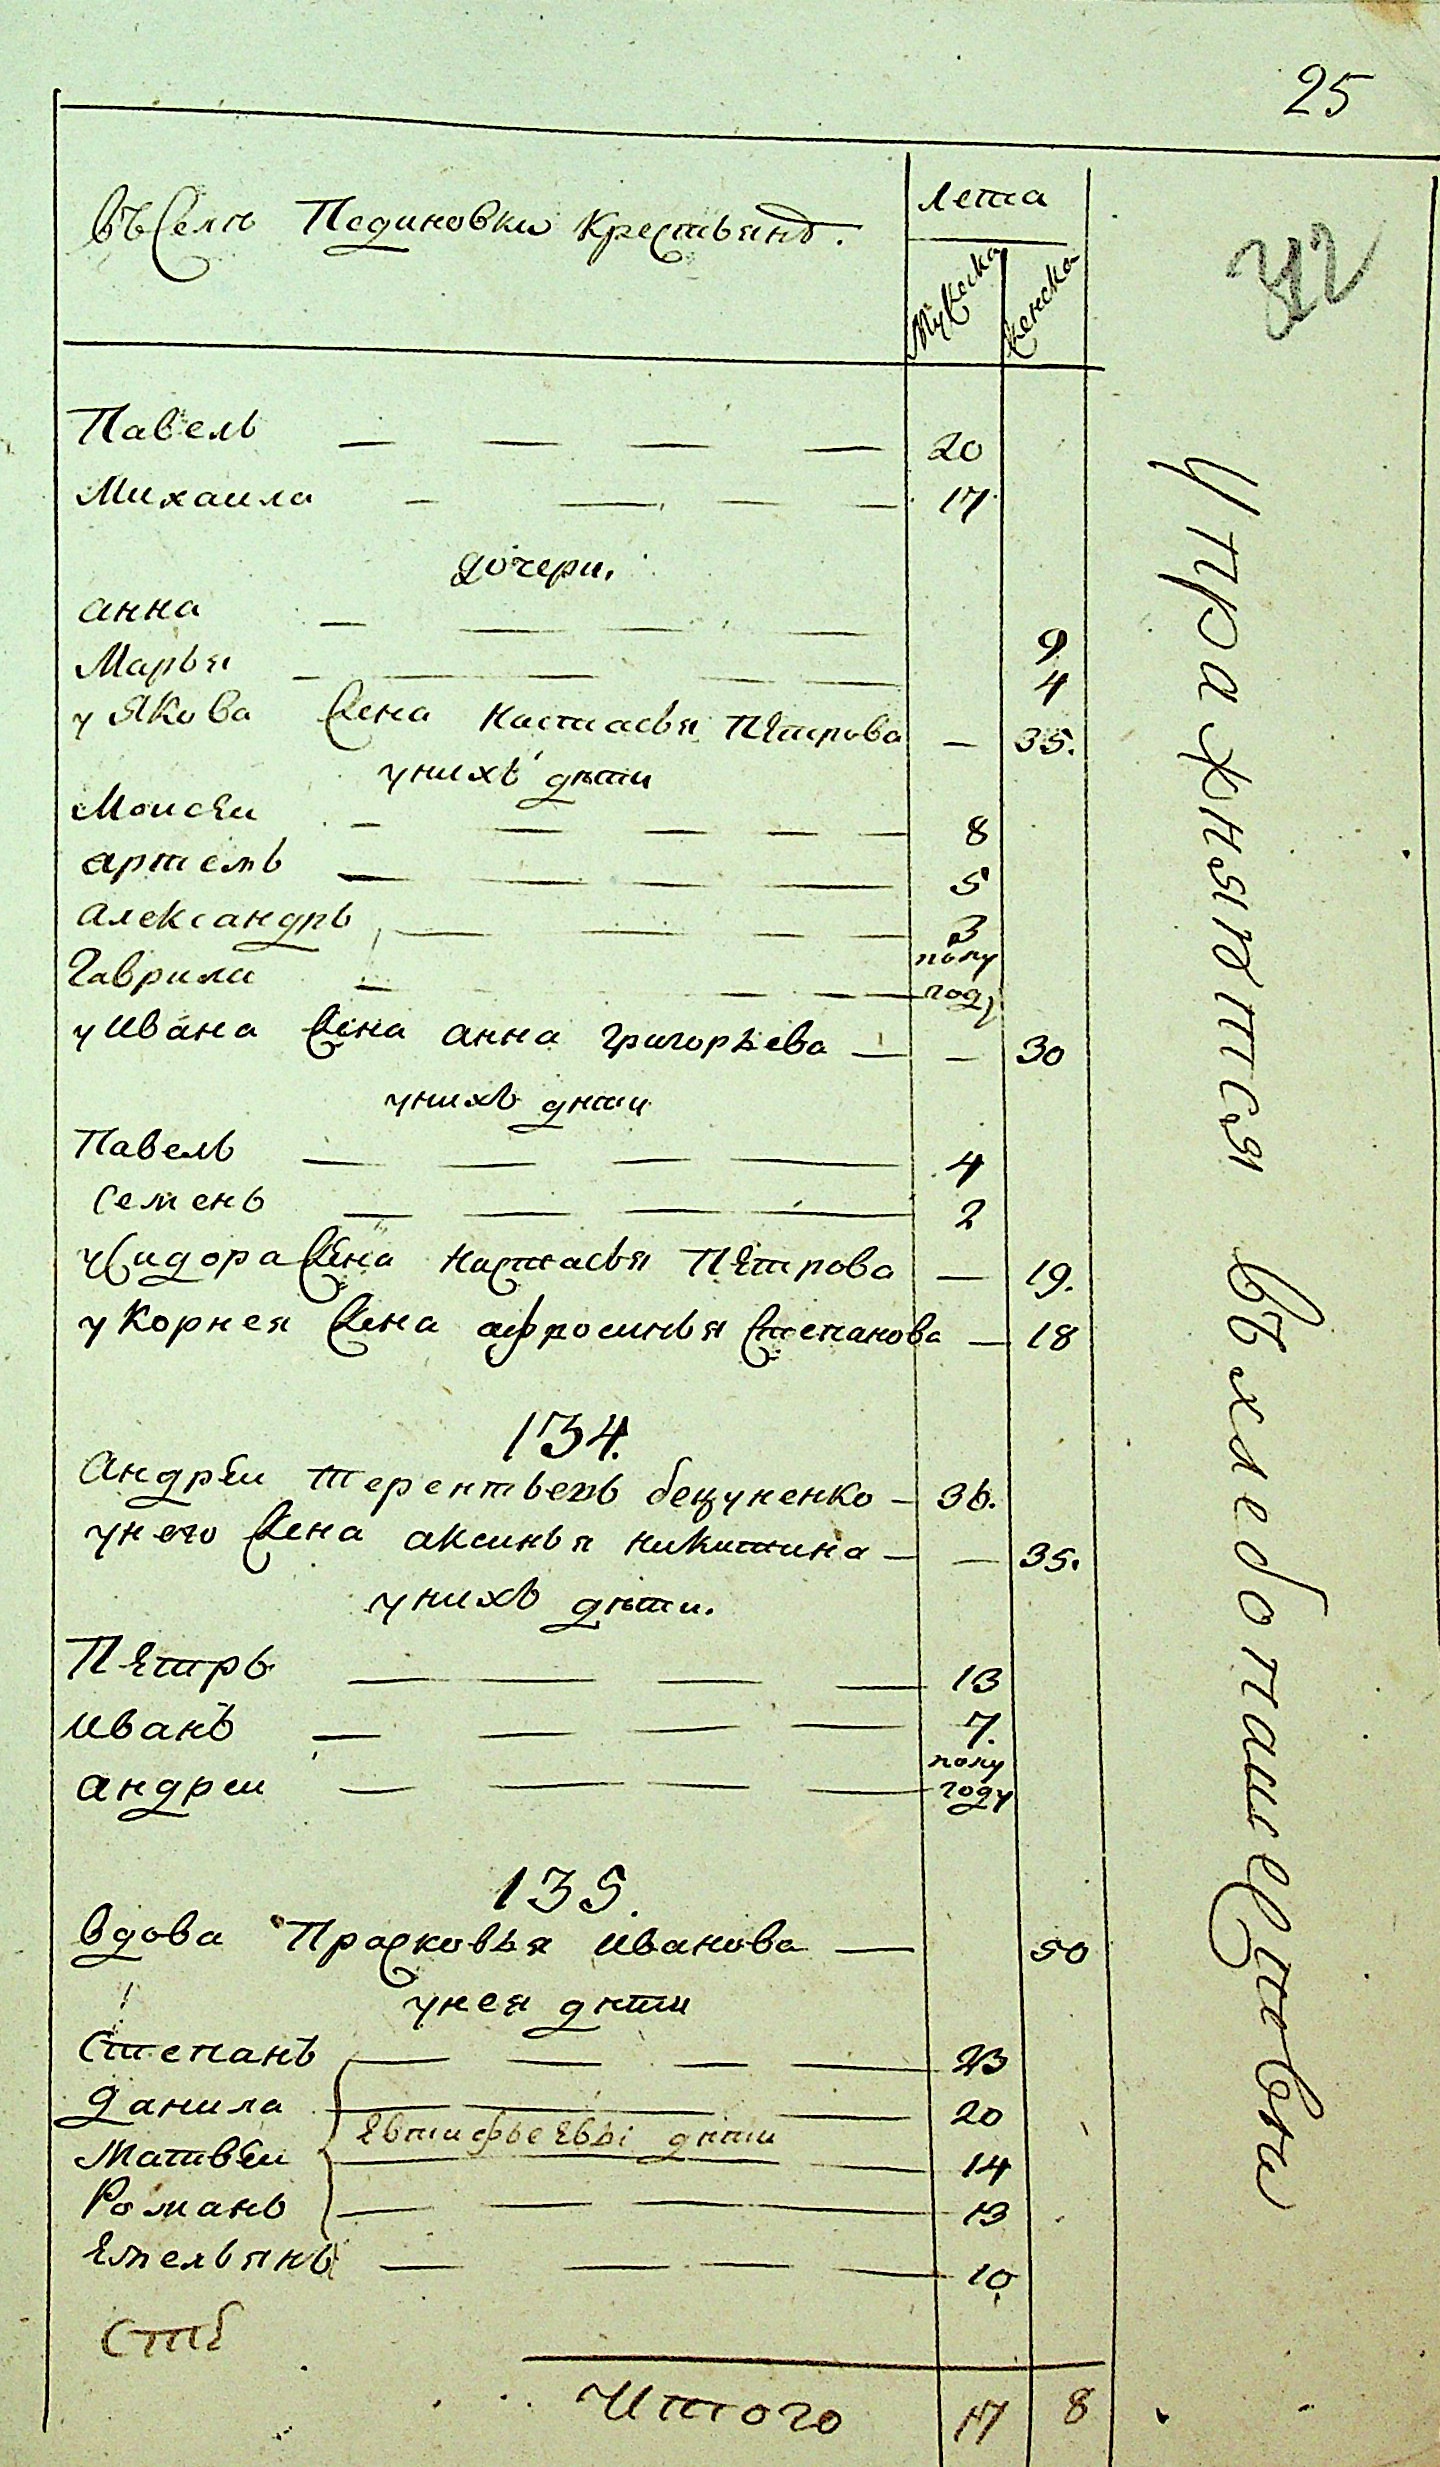 25
въ Селѣ Пединовки Крестьянъ.
лета
Мужска
женска
312
Павель — — — — 20
Михаила — — — — 17
дочери.
анна — — — — 9
Марья — — — — 4
у Якова Жена настасья Петрова — 35.
унихъ дѣти
Моисеи — — — — 8
артемъ — — — — 5
Александръ — — — — 3
Гаврила — — — — полу году
у Ивана Жена анна григорьева — — 30
унихъ дѣти
Павелъ — — — — 4
Семенъ — — — — 2
у Сидора Жена настасья Петрова — 19.
у Корнея Жена афросинья Степанова — 18
134.
Андреи терентьевъ — 36.
унего Жена аксинья никитина — — 35.
унихъ дѣти.
Петръ — — — — 13
иванъ — — — — 7.
андреи — — — — полу году
135.
вдова Прасковья иванова — 50
унея дѣти
Степанъ — — — — 23
данила — — — — 20
Евтифьевы дѣти
Матвеи — — — — 14
Романъ — — — — 13
Емельянъ — — — — 10
Итого 17 8
Упражняются въ хлебопашественномъ